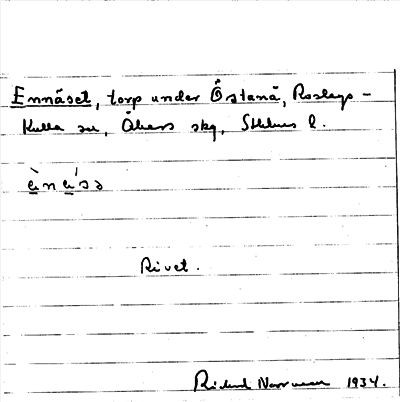 Ennäset, torp under Östanå, Roslags-
Kulla sn, Åkers skg, Sthlms l.
Rivet.
Rickard 1934.